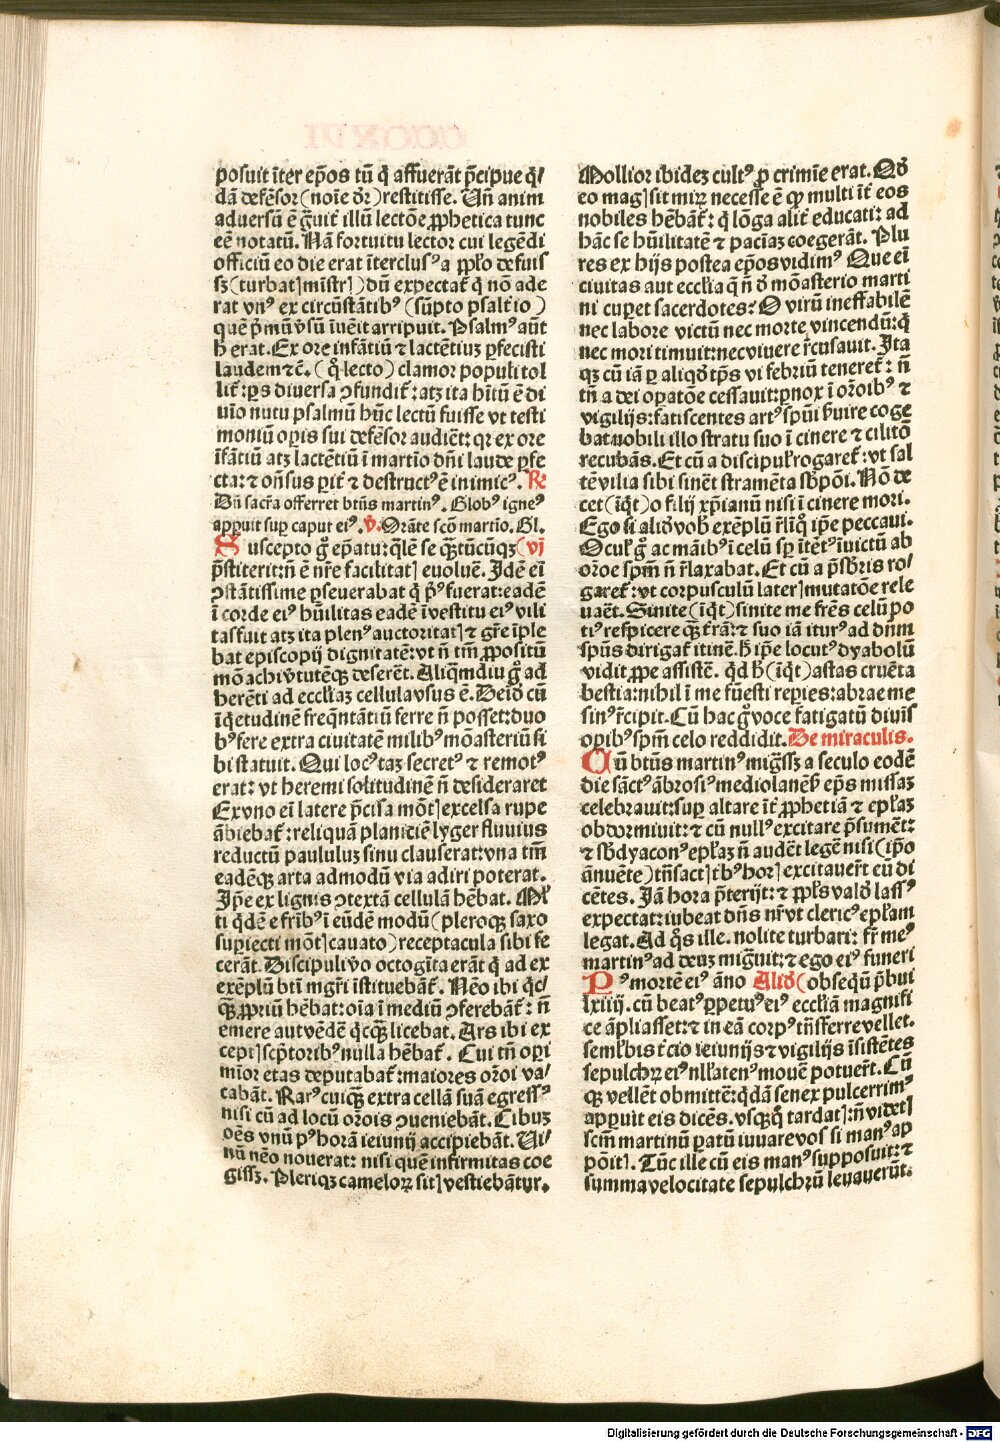 posuit īter ep̄os tū q̇ affuerāt p̄cipue q̇/
dā defēsor (noīe d̄r) restitisse. Uñ anim
aduersū ē g̊uit̄ illū lectōe ꝓphetica tunc
eē notatū. Nā fortuitu lector cui legēdi
officiū eo die erat īterclusꝰ a pp̄lo defuis
sꝫ (turbatꝭ mīstrꝭ) dū expectat̄ q̇ nō ade
rat vnꝰ ex circūstātibꝰ (sūpto psalt̄io)
quē p̄mū v̄sū īuēit arripuit. Psalmꝰ aūt
h̄ erat. Ex ore infātiū ⁊ lactētiuꝫ ꝑfecisti
laudem ⁊c̄. (q̊ lecto) clamor populi tol
lit̄: ꝑs diuersa ꝯfundit̄: atꝫ ita hītū ē di
uīo nutu psalmū hūc lectū fuisse vt testi
moniū oꝑis sui defēsor audiēt: qꝛ ex ore
īfātiū atꝫ lactētiū ī martīo dn̄i laude ꝑfe
cta: ⁊ oñsus ꝑit̄ ⁊ destructꝰ ē inimicꝰ. Re
Dū sacra offerret btūs martinꝰ. Globꝰ igneꝰ
apꝑuit suꝑ caput eiꝰ. v̄. Orāte scō martīo. Gl.
Suscepto g̊ ep̄atu: q̄lē se q̄ꝫtūcūqꝫ (vi
p̄stiterit: ñ ē nr̄e facilitatꝭ euoluē. Idē eī
ꝯstātissime ꝑseuerabat q̇ p̄ꝰ fuerat: eadē
ī corde eiꝰ hūilitas eadē ī vestitu eiꝰ vili
tas fuit atꝫ ita plenꝰ auctoritatꝭ ⁊ gr̄e īple
bat episcopij dignitatē: vt ñ tm̄ ꝓpositū
mōachi v̄tutēqꝫ deserēt. Aliq̄mdiu g̊ ad
herēti ad eccliaꝫ cellula vsus ē. Deīd cū
īq̇etudinē freq̄ntātiū ferre ñ posset: duo
bꝰ fere extra ciuitatē milibꝰ mōasteriū si
bi statuit. Qui locꝰ taꝫ secretꝰ ⁊ remotꝰ
erat: vt heremi solitudinē ñ desideraret
Ex vno eī latere p̄cisa mōtꝭ excelsa rupe
ābiebat̄: reliquā planiciē lyger fluuius
reductū paululuꝫ sinu clauserat: vna tm̄
eadēqꝫ arta admodū via adiri poterat.
Ip̄e ex lignis ꝯtextā cellulā hēbat. Ml̄
ti q̇dē e fr̄ibꝰ ī eūdē modū (pleroqꝫ saxo
suꝑiecti mōtꝭ cauato) receptacula sibi fe
cerāt. Discipuli v̊o octogīta erāt q̇ ad ex
exēplū btī mgr̄i īstituebāt̄. Nēo ibi q̇c/
q̄ꝫ ꝓpriū hēbat: oīa ī mediū ꝯferebāt̄: ñ
emere aut vēdē q̇cq̄ꝫ licebat. Ars ibi ex
ceptꝭ scp̄toribꝰ nulla hēbat̄. Cui tñ oꝑi
mīor etas deputabat̄: maiores or̄oi va/
cabāt. Rarꝰ cuiq̄ꝫ extra cellā suā egressꝰ
nisi cū ad locū or̄ois ꝯueniebāt. Cibuꝫ
oēs vnū pꝰ horā ieiunij accipiebāt. Ui/
nū nēo nouerat: nisi quē infirmitas coe
gissꝫ. Pleriqꝫ cameloꝝ sitꝭ vestiebātur.
Mollior ibideꝫ cultꝰ ꝓ crimīe erat. Qd̊
eo magꝭ sit miꝝ necesse ē qꝫ multi īt̄ eos
nobiles hēbāt̄: q̇ lōga alit̄ educati: ad
hāc se hūilitatē ⁊ paciaꝫ coegerāt. Plu
res ex hijs postea ep̄os vidimꝰ Que eī
ciuitas aut ecclia q̄ ñ d̊ mōasterio marti
ni cuꝑet sacerdotes? O virū ineffabilē
nec labore victū nec morte vincendū: q̇
nec mori timuit: nec viuere r̄cusauit. Ita
qꝫ cū iā ꝑ aliqd̊ tp̄s vi febriū teneret̄: ñ
tñ a dei opatōe cessauit: ꝑnox ī or̄oibꝰ ⁊
vigilijs: fatiscentes artꝰ spūi s̄uire coge
bat nobili illo stratu suo ī cinere ⁊ cilitō
recubās. Et cū a discipul̄ rogaret̄: vt sal
tē vilia sibi sinēt stramēta sb̄poni. Nō de
cet (iq̄t) o filij xp̄ianū nisi ī cinere mori.
Ego si aliō vob̄ exēplū rl̄iq̇ ip̄e peccaui.
Ocul̄ g̊ ac māibꝰ ī celū sꝑ ītētꝰ īuictū ab
or̄oe spm̄ ñ r̄laxabat. Et cū a p̄sb̄ris ro/
garet̄: vt corpusculū laterꝭ mutatōe rele
uaēt. Sinite (iq̄t) sinite me fr̄es celū po
tiꝰ respicere q̄ꝫ t̄rā: ⁊ suo iā iturꝰ ad dn̄m
spūs dirigat̄ itinē. h̄ ip̄e locutꝰ dyabolū
vidit ꝓpe assistē. q̇d h̄ (iq̄t) astas cruēta
bestia: nihil ī me fūesti reꝑies: abrae me
sinꝰ r̄cipit. Cū hac g̊ voce fatigatū diuīs
oꝑibꝰ spm̄ celo reddidit. De miraculis.
Cū btūs martinꝰ migssꝫ a seculo eodē
die sāctꝰ ābrosiꝰ mediolanēs̄ ep̄s missaꝫ
celebrauit: suꝑ altare īt̄ ꝓphetiā ⁊ epl̄aꝫ
obdormiuit: ⁊ cū nullꝰ excitare p̄sumēt:
⁊ sb̄dyaconꝰ epl̄aꝫ ñ audēt legē nisi (ip̄o
ānuēte) tn̄sactꝭ tbꝰ horꝭ excitauert̄ eū di
cētes. Iā hora p̄terijt: ⁊ ppl̄s vald̊ lassꝰ
expectat: iubeat dn̄s nr̄ vt clericꝰ epl̄am
legat. Ad q̊s ille. nolite turbari: fr̄ meꝰ
martinꝰ ad deuꝫ mig̊uit: ⁊ ego eiꝰ funeri
Pꝰ mortē eiꝰ āno Aliō (obsequū p̄bui
lxiiij. cū beatꝰ ꝑpetuꝰ eiꝰ eccliā magnifi
ce āpliasset: ⁊ in eā corpꝰ tn̄sferre vellet.
seml̄ bis t̄cio ieiunijs ⁊ vigilijs īsistētes
sepulchꝝ eiꝰ nl̄latenꝰ mouē potuert̄. Cū
qꝫ vellēt obmittē: q̇dā senex pulcerrimꝰ
apꝑuit eis dicēs. vsq̄q̊ tardatꝭ: ñ videtꝭ
scm̄ martinū ꝑatū iuuare vos si manꝰ ap
pōitꝭ. Tūc ille cū eis manꝰ supposuit: ⁊
summa velocitate sepulchrū leuauerūt.
Digitalisierung gefördert durch die Deutsche Forschungsgemeinschaft - DFG